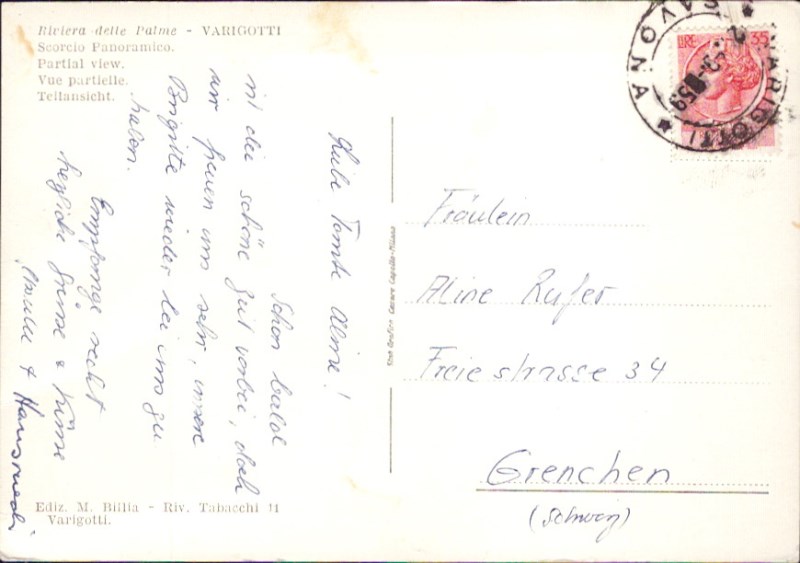 Riviera delle Palme - VARIGOTTI
Scorcio Panoramico.
Partial view.
Vue partielle.
Teilansicht.
Liebe Tante Aline!
Schon bald
ist die schöne Zeit vorbei, doch
wir freuen uns sehr, unsere
Brigitte wieder bei uns zu
haben.
Empfange recht
herzliche Grüsse & Küsse
& Hansruedi
LIRE 35
VARIGOTTI
SAVONA
1959
Fräulein
Aline Rufer
Freiestrasse 34
Grenchen
(Schweiz)
Ediz. M. Billia - Riv. Tabacchi 11
Varigotti.
Cesare Capello-Milano